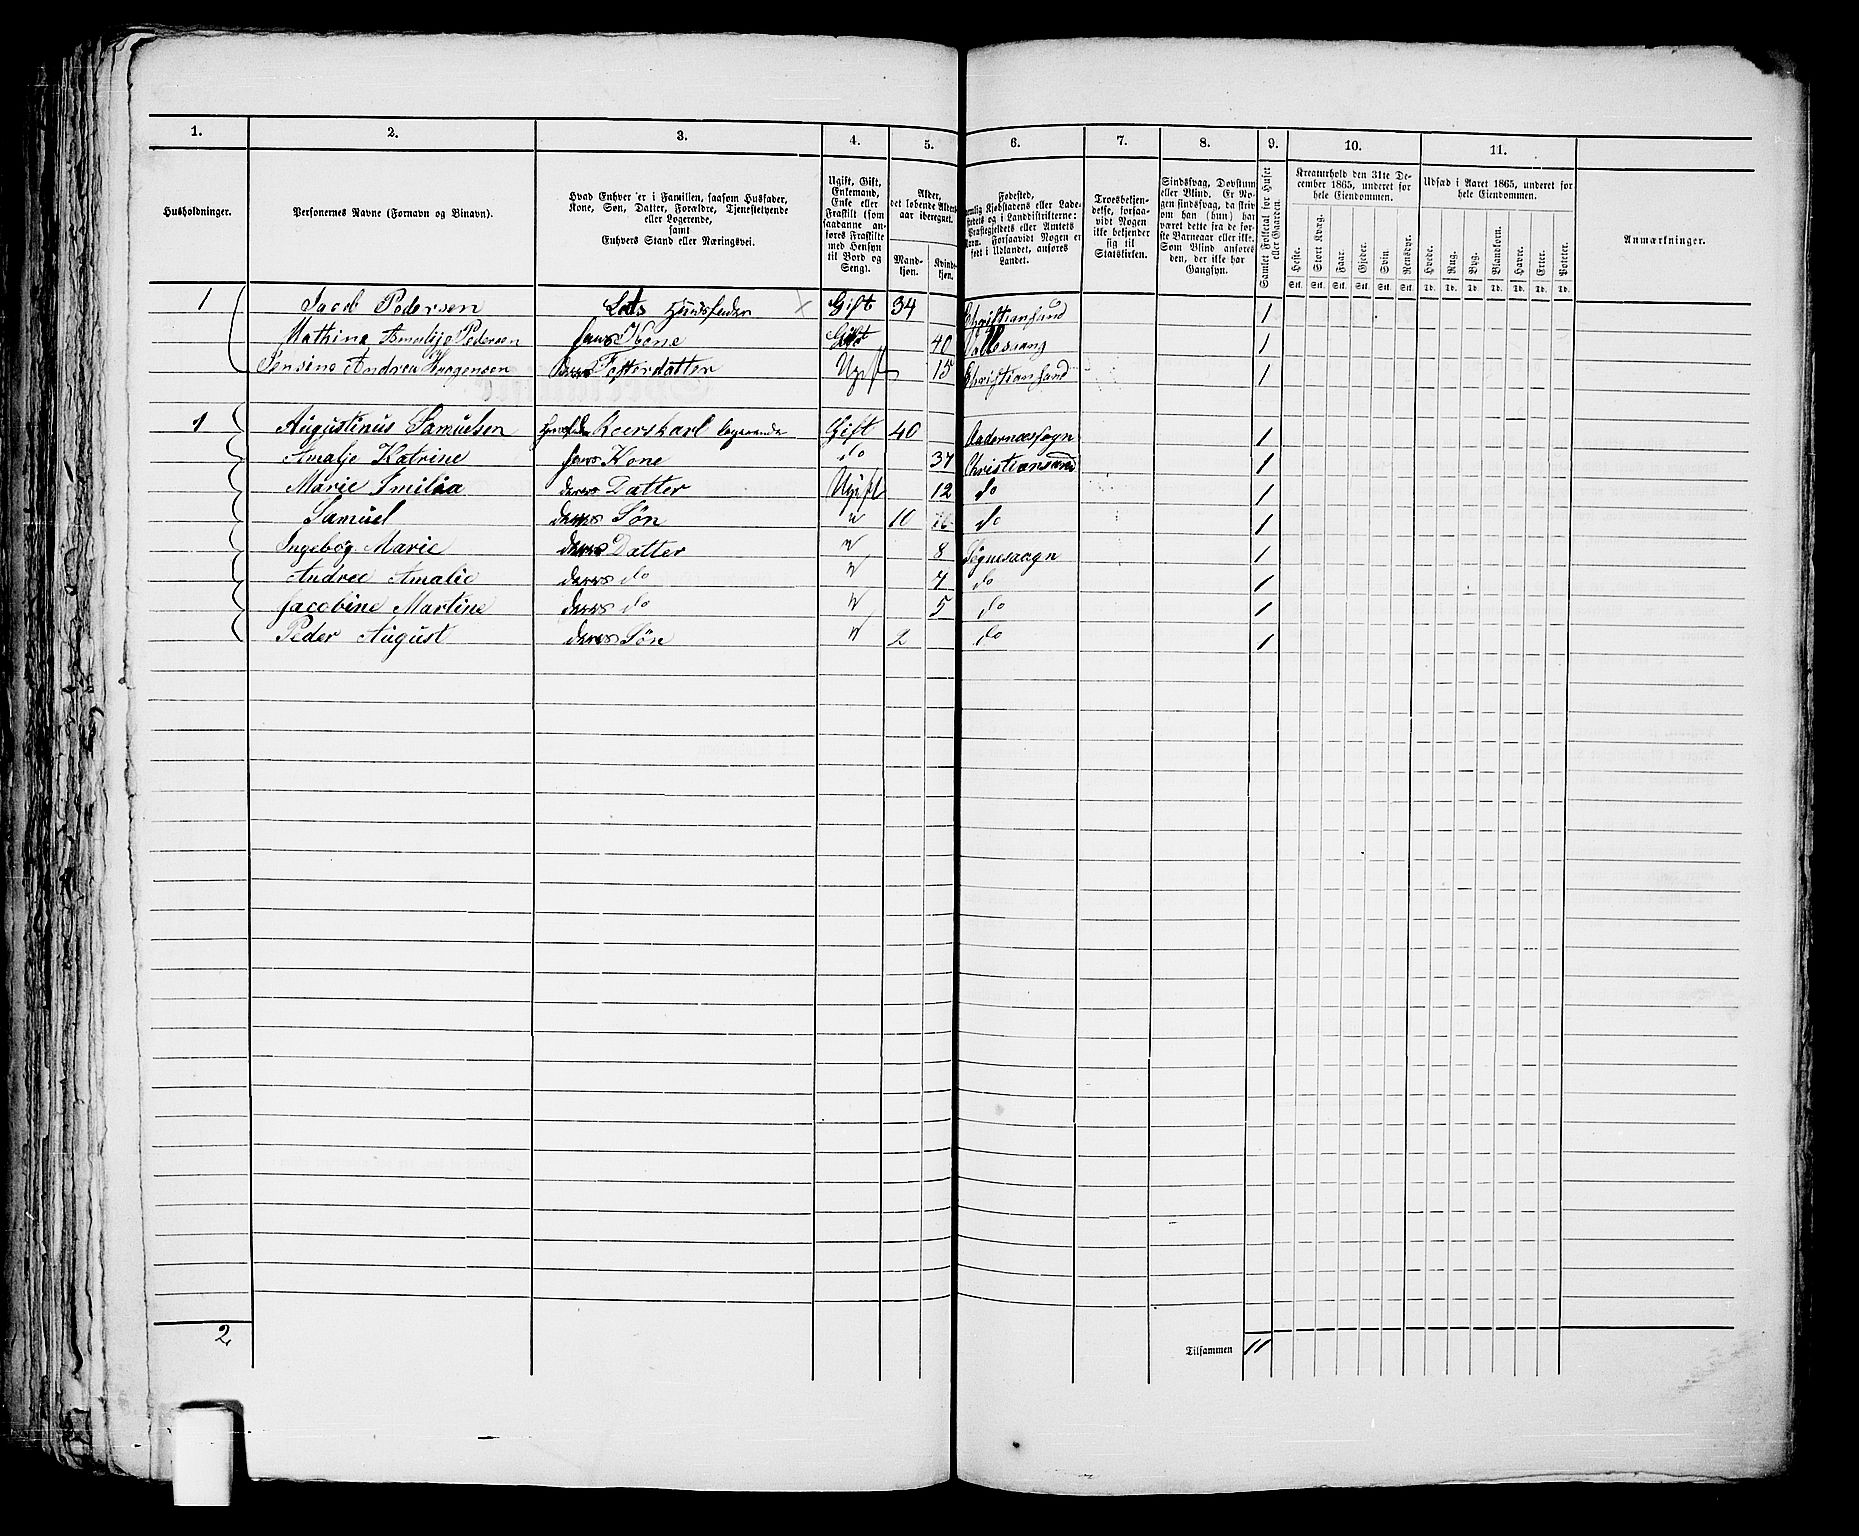 1. 2. 3. 4. 5. 6. 7. 8. 9. 10. 11.
Husholdninger.
Personernes Navne (Fornavn og Binavn).
Hvad Enhver er i Familien, saasom Husfader,
Kone, Søn, Datter, Forældre, Tjenestetyende
eller Logerende,
samt
Enhvers Stand eller Næringsvei.
Ugift, Gift,
Enkemand,
Enke eller
Fraskilt (som
saadanne an-
føres Fraskilte
med Hensyn
til Bord og
Seng).
Alder,
det løbende Alders-
aar iberegnet.
Mand-
kjøn.
Kvind-
kjøn.
Fødested,
nemlig Kjøbstadens eller Lade-
stedets og i Landdistrikterne:
Præstegjeldets eller Amtets
Navn. Forsaavidt Nogen er
født i Udlandet, anføres
Landet.
Troesbekjen-
delse, forsaa-
vidt Nogen
ikke bekjender
sig til
Statskirken.
Sindssvag, Døvstum
eller Blind. Er No-
gen sindssvag, da skriv
om han (hun) har
været dette fra de før-
ste Barneaar eller ikke.
Som Blind anføres
den, der ikke har
Gangsyn.
Samlet Folketal for Huset
eller Gaarden.
Kreaturhold den 31te De-
cember 1865, underet for
hele Eiendommen.
Heste. Stort Kvæg. Faar. Gjeder. Svin. Rensdyr.
Stk. Stk. Stk. Stk. Stk. Stk.
Udsæd i Aaret 1865, underet for
hele Eiendommen.
Hvede. Rug. Byg. Blandkorn. Havre. Erter. Poteter.
Td. Td. Td. Td. Td. Td. Td.
Anmærkninger.
1 Jacob Pedersen Lods Huusfader Gift 34 Christiansand 1
Mathine Amalje Pedersen hans Kone Gift 40 1
Jensine Andrea deres Fosterdatter Ugift 15 Christiansand 1
1 Augustinus Samuelsen Logerende Gift 40 1
Amalje Katrine hans Kone do 37 Christiansand 1
Marie Emilia deres Datter Ugift 12 do 1
Samuel deres Søn " 10 do 1
Ingebøg Marie deres Datter " 8 1
Andree Amalie deres do " 7 do 1
Jacobine Martine deres do " 5 do 1
Peder August deres Søn " 2 do 1
2
Tilsammen 11